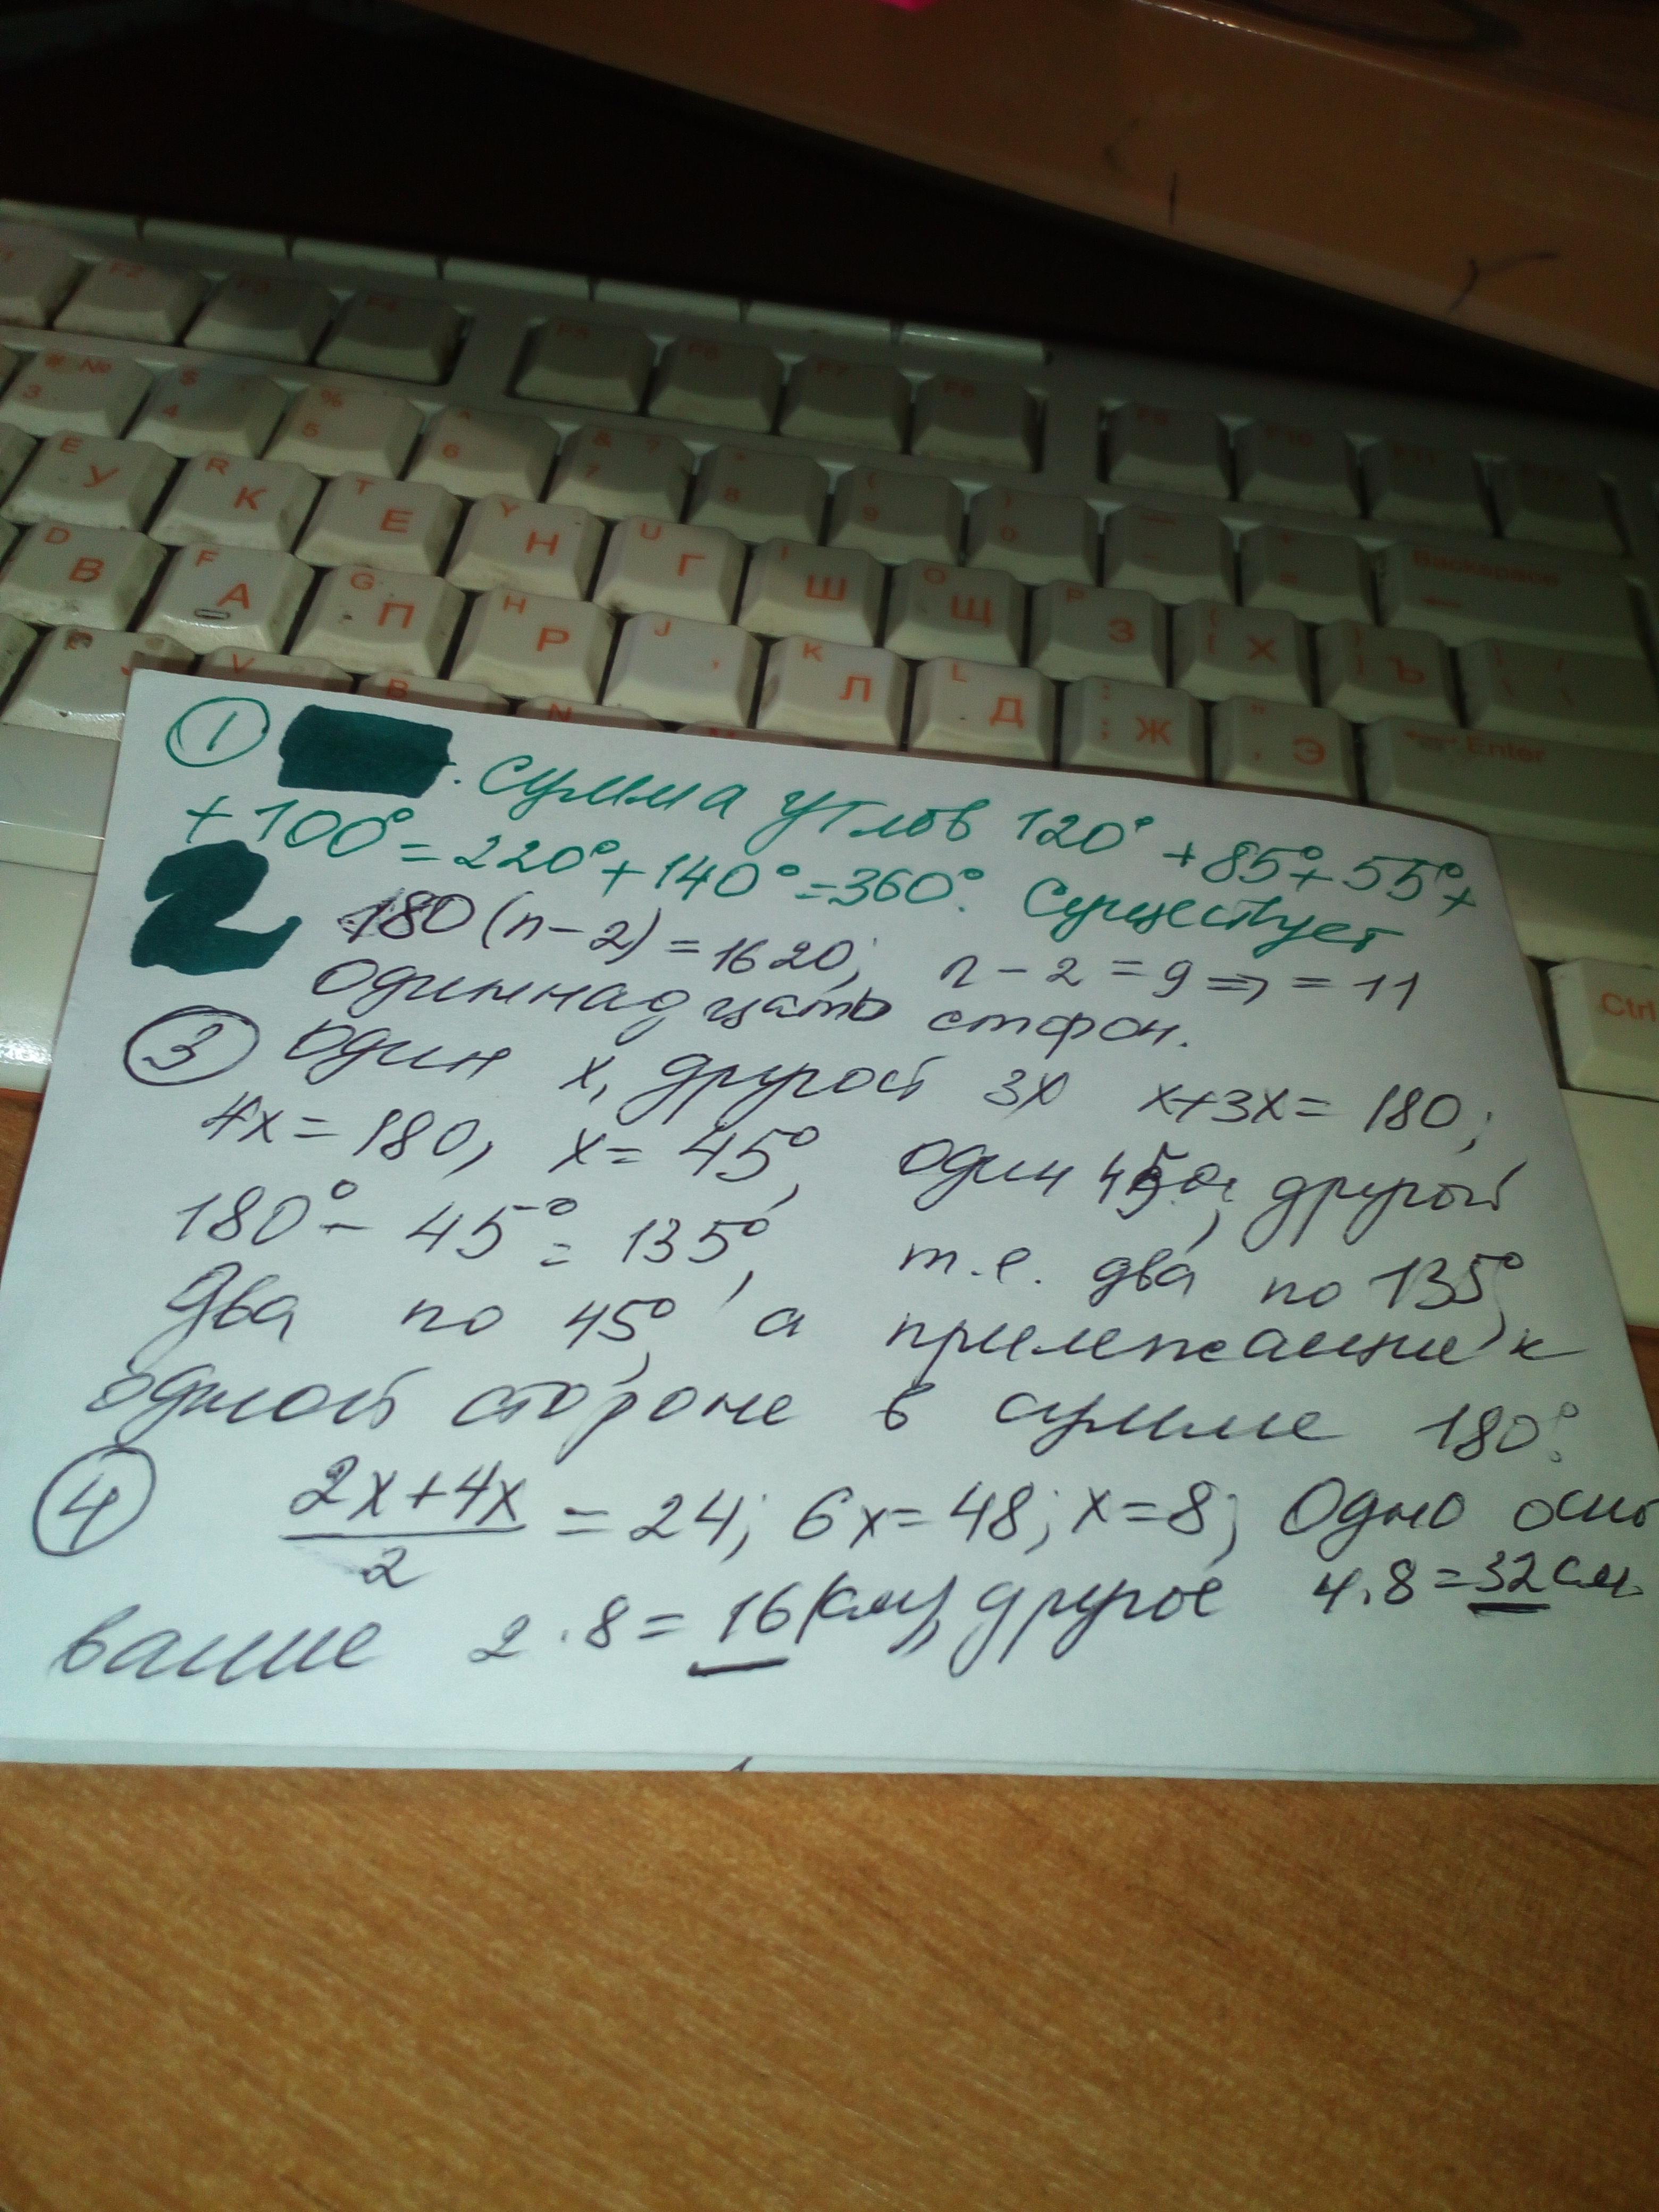 F2 F3 F4 F5 F6 F7 F8 F9 F10 F11
# № 3 $ 4 % 5 ^ 6 & ? 7 * 8 ( 9 ) 0 Backspace
E У R К T Е Y Н U Г I Ш O Щ P З { [ Х } ] Ъ
D В F А G П H Р J K Л L Д : ; Ж " ' Э Enter
V B N M
Ctrl
① . Сумма углов 120° + 85° + 55° +
+ 100° = 220° + 140° = 360°. Существует
2 180(n-2) = 1620; n-2 = 9 ⇒ = 11
одиннадцать сторон.
③ Один x, другой 3x x+3x = 180;
4x = 180, x = 45°, один 45°, другой
180° - 45° = 135°, т.е. два по 135°,
два по 45°, а прилежащие к
одной стороне в сумме 180°.
④ (2x+4x)/2 = 24; 6x = 48; x = 8; Одно осно
вание 2·8 = 16 (см), другое 4·8 = 32 см.